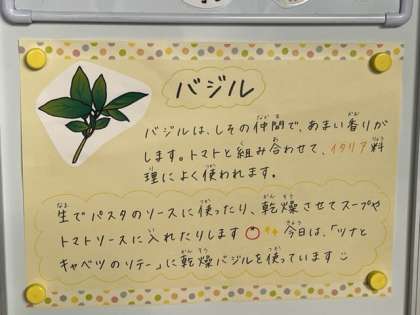 バジル
バジルは、しその仲間で、あまい香りが
します。トマトと組み合わせて、イタリア料
理によく使われます。
生でパスタのソースに使ったり、乾燥させてスープや
トマトソースに入れたりします 今日は、「ツナと
キャベツのソテー」に乾燥バジルを使っています